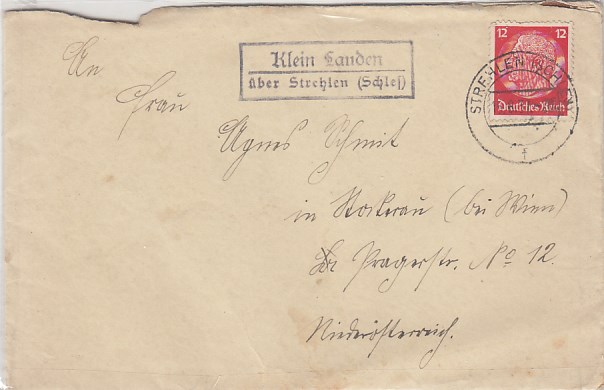 12 12
Deutsches Reich
STREHLEN
Klein Lauden
über Strehlen (Schles)
An
Frau
Agnes Schmit
in Stockerau (bei Wien)
Pragerstr. No 12.
Niederösterreich.